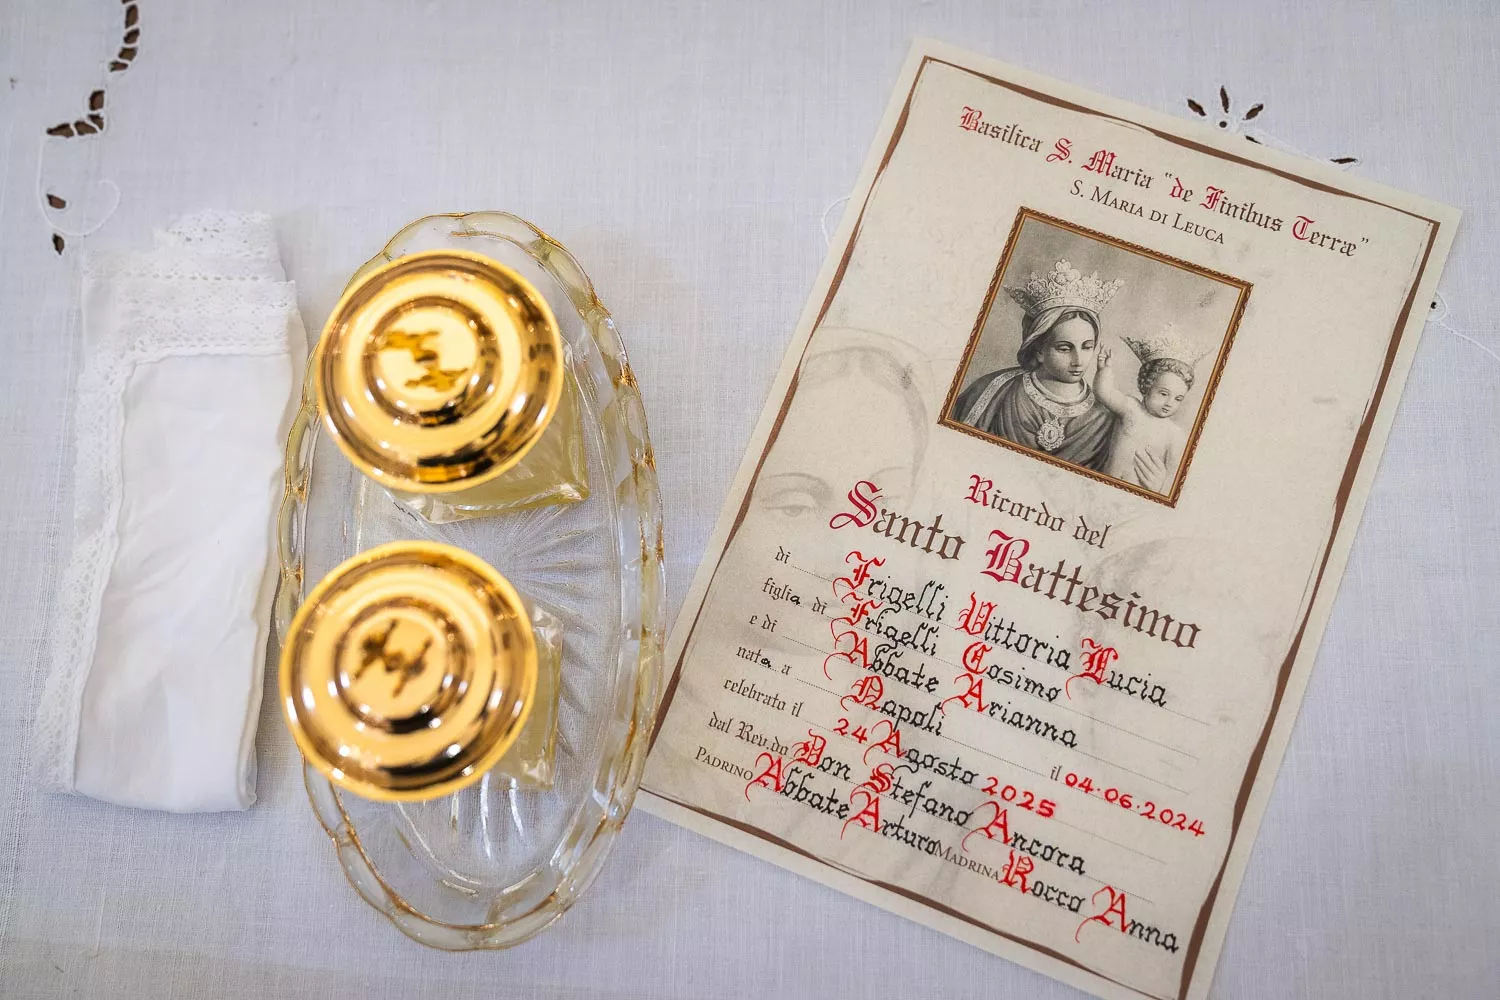 Basilica S. Maria "de Finibus Terræ"
S. Maria di Leuca
Ricordo del
Santo Battesimo
di Frigelli Vittoria Lucia
figlia di Frigelli Cosimo
e di Abbate Arianna
nata a Napoli il 04·06·2024
celebrato il 24 Agosto 2025
dal Rev.do Don Stefano Ancora
Padrino Abbate Arturo Madrina Rocco Anna